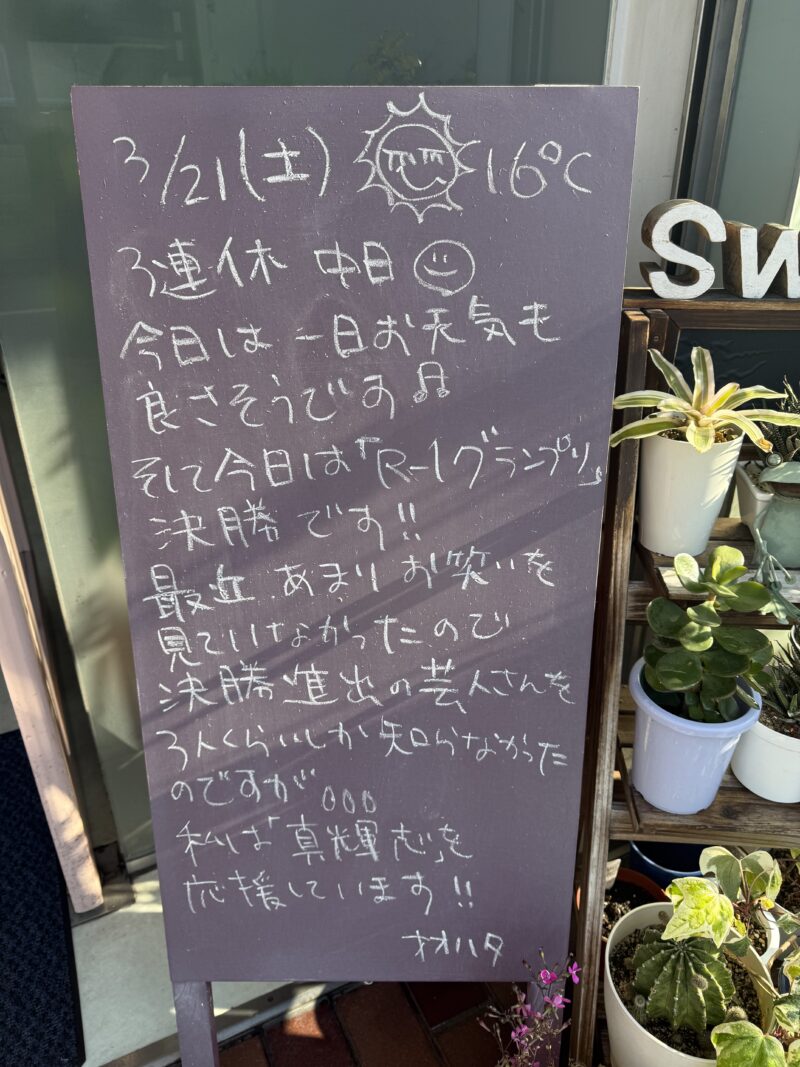 3/21(土) 16°C
3連休 中日
今日は一日お天気も
良さそうです♫
そして今日は「R-1グランプリ」
決勝です!!
最近あまりお笑いを
見ていなかったので
決勝進出の芸人さんを
3人くらいしか知らなかった
のですが。。。
私は「真輝志」を
応援しています!!
オオハタ
Sw